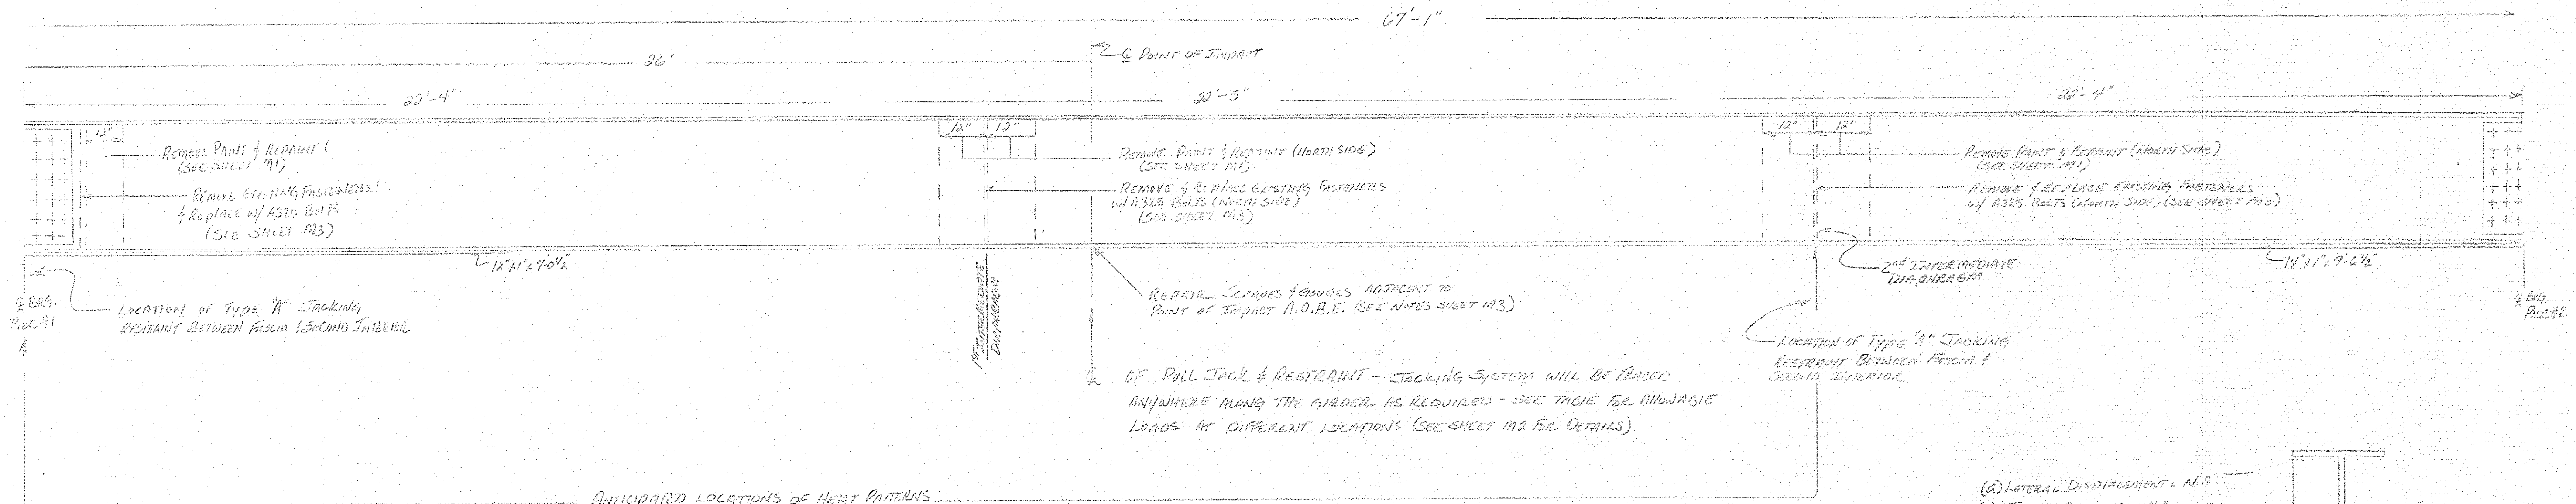 67'-1"
℄ POINT OF IMPACT
26'
22'-4"
22'-5"
22'-4"
12"
12"
12"
12"
12"
REMOVE PAINT & REPAINT
(SEE SHEET M1)
REMOVE EXISTING FASTENERS
& REPLACE W/ A325 BOLTS
(SEE SHEET M3)
REMOVE PAINT & REPAINT (NORTH SIDE)
(SEE SHEET M1)
REMOVE & REPLACE EXISTING FASTENERS
W/ A325 BOLTS (NORTH SIDE)
(SEE SHEET M3)
REMOVE PAINT & REPAINT (NORTH SIDE)
(SEE SHEET M1)
REMOVE & REPLACE EXISTING FASTENERS
W/ A325 BOLTS (NORTH SIDE) (SEE SHEET M3)
12"x1"x7'-0½"
2nd INTERMEDIATE
DIAPHRAGM
14"x1"x9'-6½"
℄ BRG.
PIER #1
LOCATION OF TYPE "A" JACKING
RESTRAINT BETWEEN FASCIA & SECOND INTERIOR
1ST INTERMEDIATE
DIAPHRAGM
REPAIR SCRAPES & GOUGES ADJACENT TO
POINT OF IMPACT A.O.B.E. (SEE NOTES SHEET M3)
℄ BRG.
PIER #2
LOCATION OF TYPE "A" JACKING
RESTRAINT BETWEEN FASCIA &
SECOND INTERIOR
℄ OF PULL JACK & RESTRAINT - JACKING SYSTEM WILL BE PLACED
ANYWHERE ALONG THE GIRDER AS REQUIRED - SEE TABLE FOR ALLOWABLE
LOADS AT DIFFERENT LOCATIONS (SEE SHEET M2 FOR DETAILS)
ANTICIPATED LOCATIONS OF HEAT PATTERNS
(a) LATERAL DISPLACEMENT: